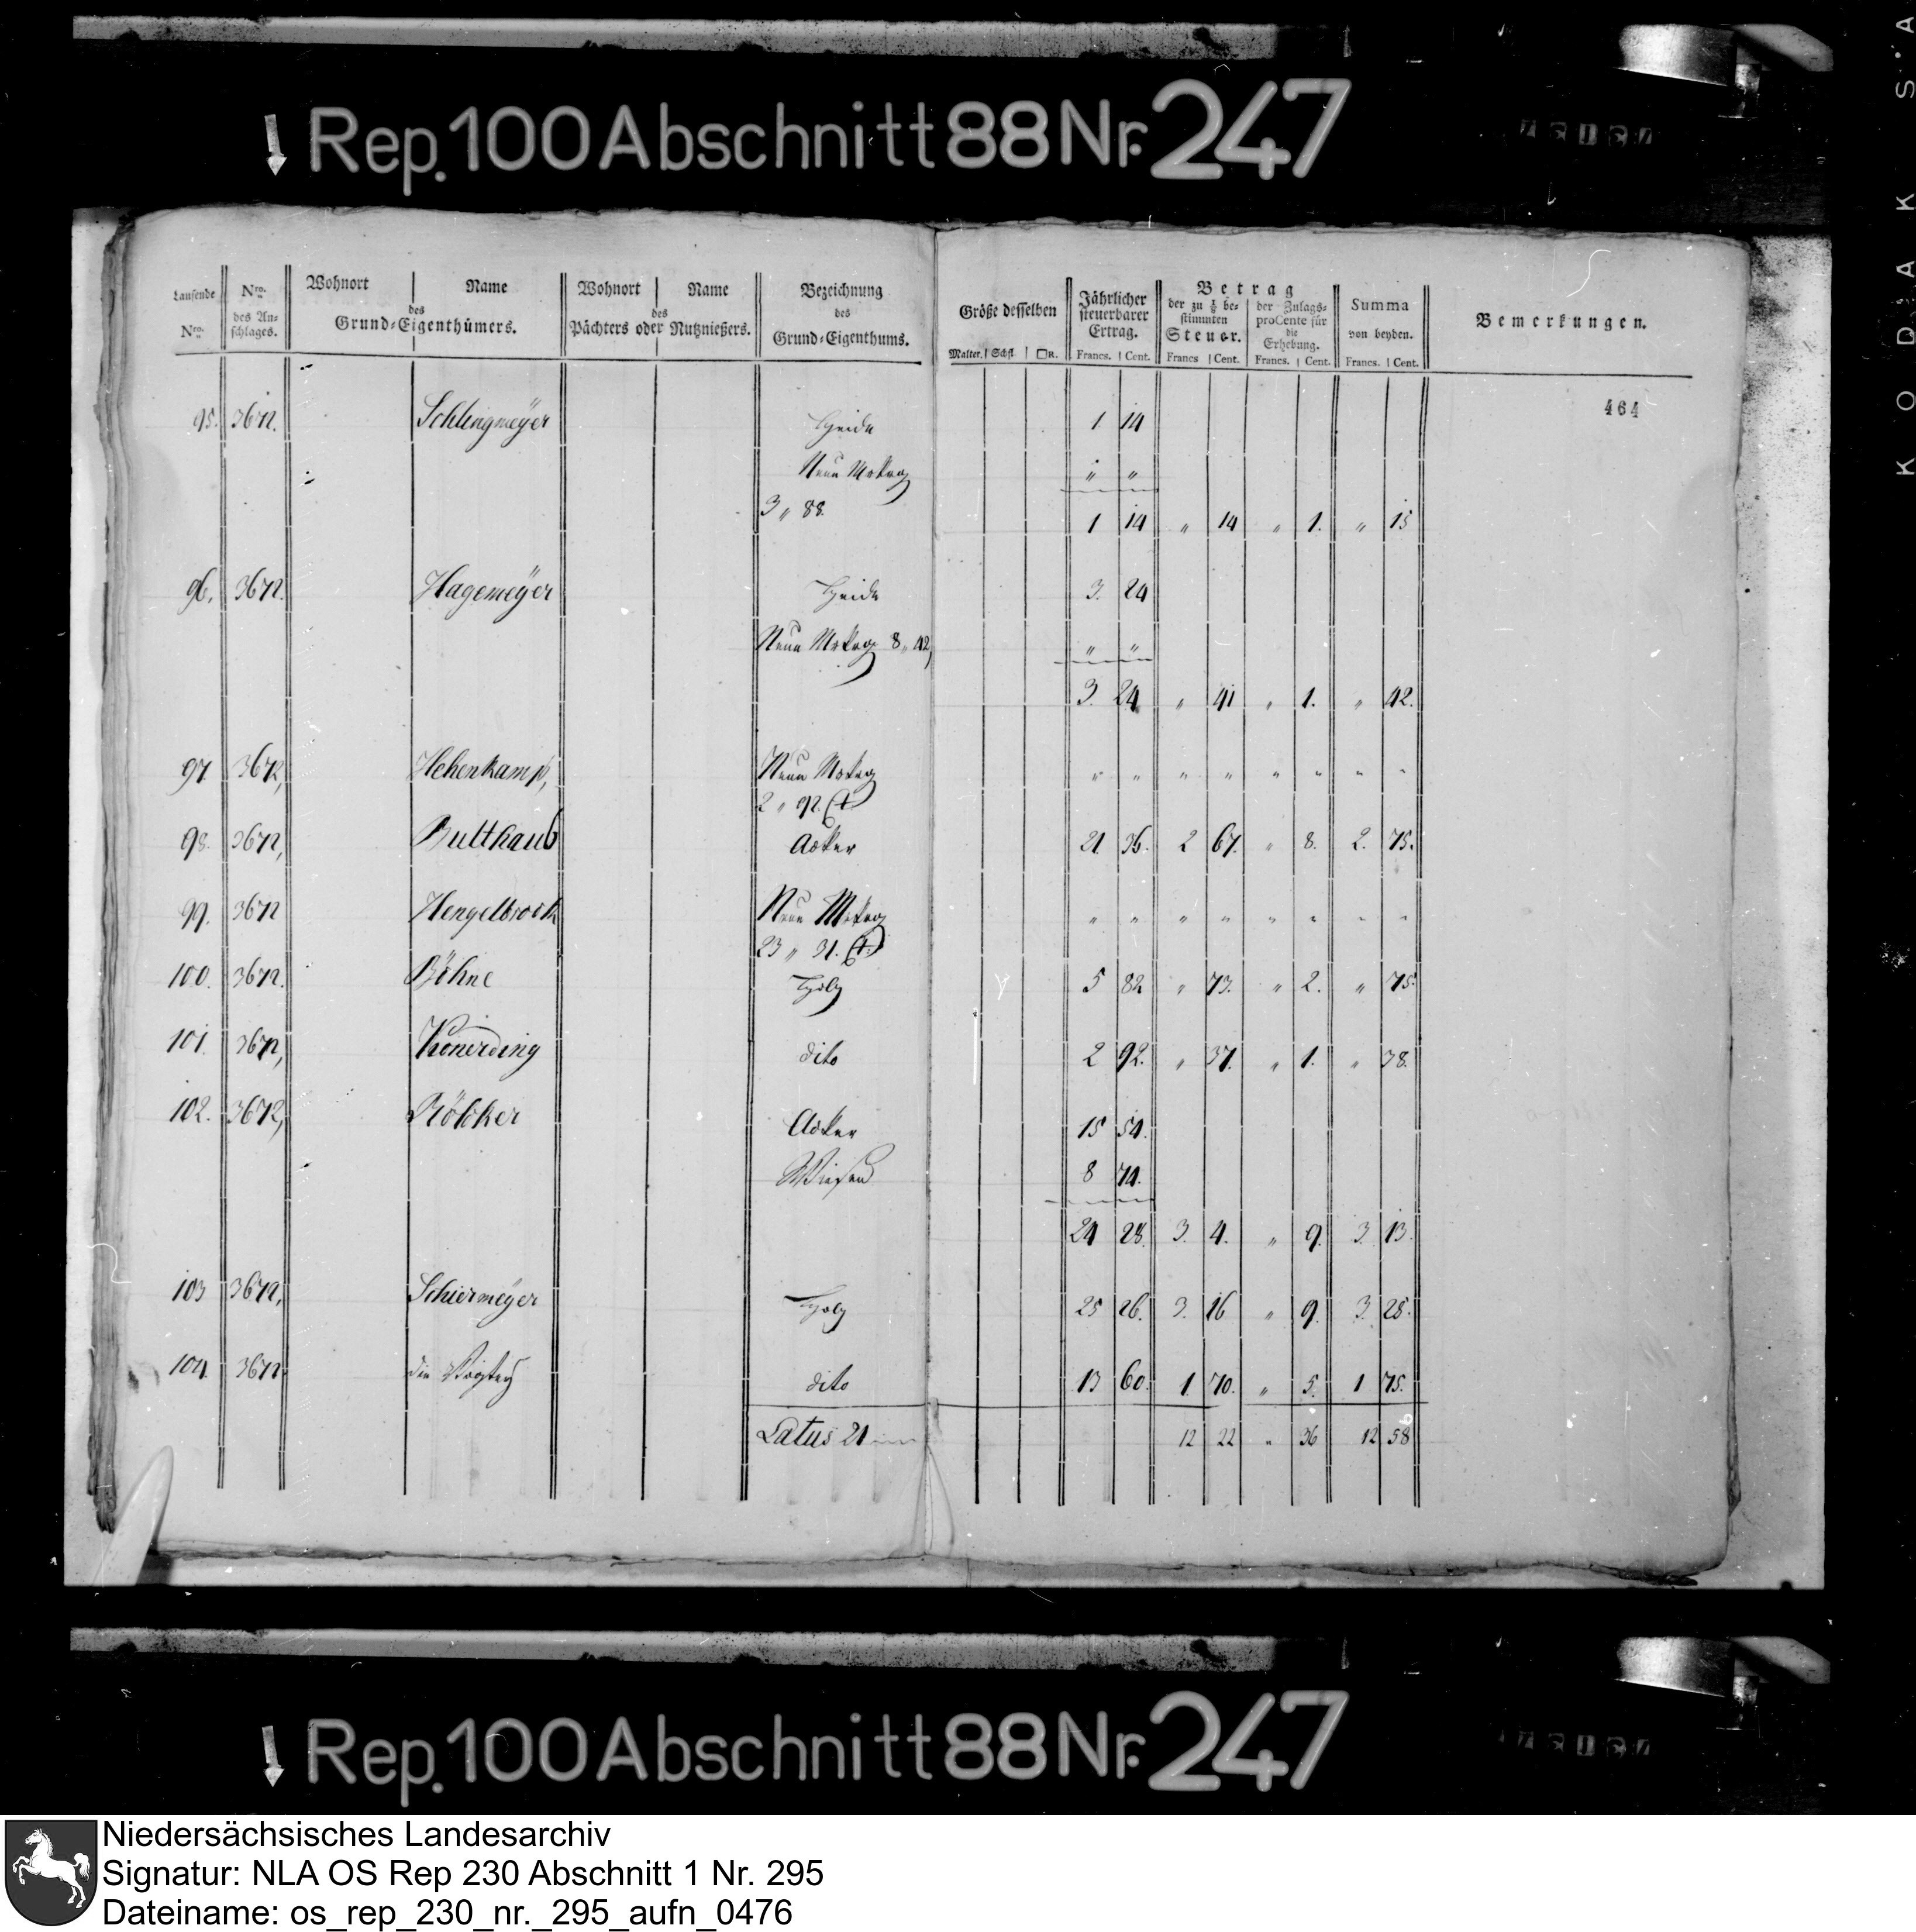 Rep. 100 Abschnitt 88 Nr. 247
KODAK S·A
Laufende Nro. | Nro. des An-schlages. | Wohnort | Name des Grund-Eigenthümers. | Wohnort | Name des Pächters oder Nutznießers. | Bezeichnung des Grund-Eigenthums. | Größe desselben Malter. Schfl. □R. | Jährlicher steuerbarer Ertrag. Francs. Cent. | Betrag der zu ⅛ be-stimmten Steuer. Francs Cent. | der Zulags-proCente für die Erhebung. Francs. Cent. | Summa von beyden. Francs. Cent. | Bemerkungen.
464
95. 3672. Schlingmeÿer Heide 1 14
Neue Mrkng " "
3 " 88. 1 14 " 14 " 1. " 15
96. 3672. Hagemeÿer Heide 3. 24
Neue Mrkng 8 " 42, " "
3. 24 " 41 " 1. " 42.
97. 3672, Hehenkamp, Neue Mrkng " " " " " " " "
2 " 92.
98. 3672, Bulthaub Acker 21. 36. 2 67. " 8. 2. 75.
99. 3672 Hengelbrock Neue Mrkng " " " " " " " "
23 " 31.
100. 3672. Böhne Holz 5 82 " 73. " 2. " 75.
101. 3672, Konerding dito 2 92. " 37. " 1. " 38.
102. 3672, Rölcker Acker 15 54.
Wiesen 8 74.
24 28. 3. 4. " 9. 3. 13.
103 3672, Schiermeÿer Holz 25 26. 3. 16 " 9. 3. 25.
104. 3672. die Vogtey dito 13 60. 1. 70. " 5. 1 75.
Latus 21 12 22 " 36 12 58
Rep. 100 Abschnitt 88 Nr. 247
Niedersächsisches Landesarchiv
Signatur: NLA OS Rep 230 Abschnitt 1 Nr. 295
Dateiname: os_rep_230_nr._295_aufn_0476